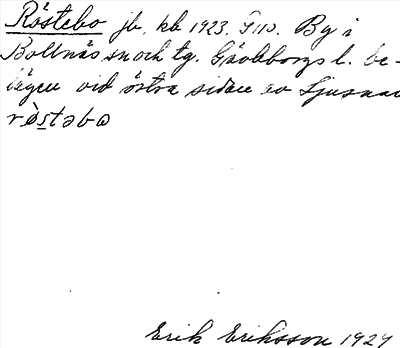 Röstebo jb, kb 1923. G110. By i
Bollnäs sn och tg. Gävleborgs l. be-
lägen vid östra sidan av Ljusnan
ròstəbo
Erik Eriksson 1929